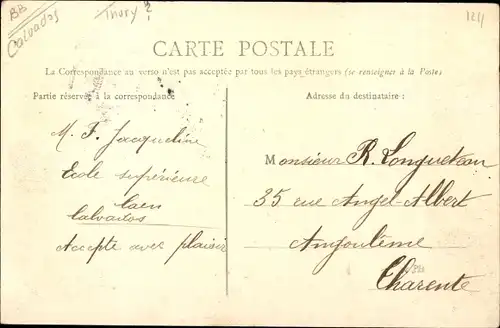 BB
Calvados
Thury ?
1211
CARTE POSTALE
La Correspondance au verso n'est pas acceptée par tous les pays étrangers (se renseigner à la Poste)
Partie réservée à la correspondance
Adresse du destinataire :
M. F. Jacqueline
Ecole supérieure
Caen
Calvados
Accepte avec plaisir
Monsieur R. Longueteau
35 rue Angel-Albert
Angoulême
Charente